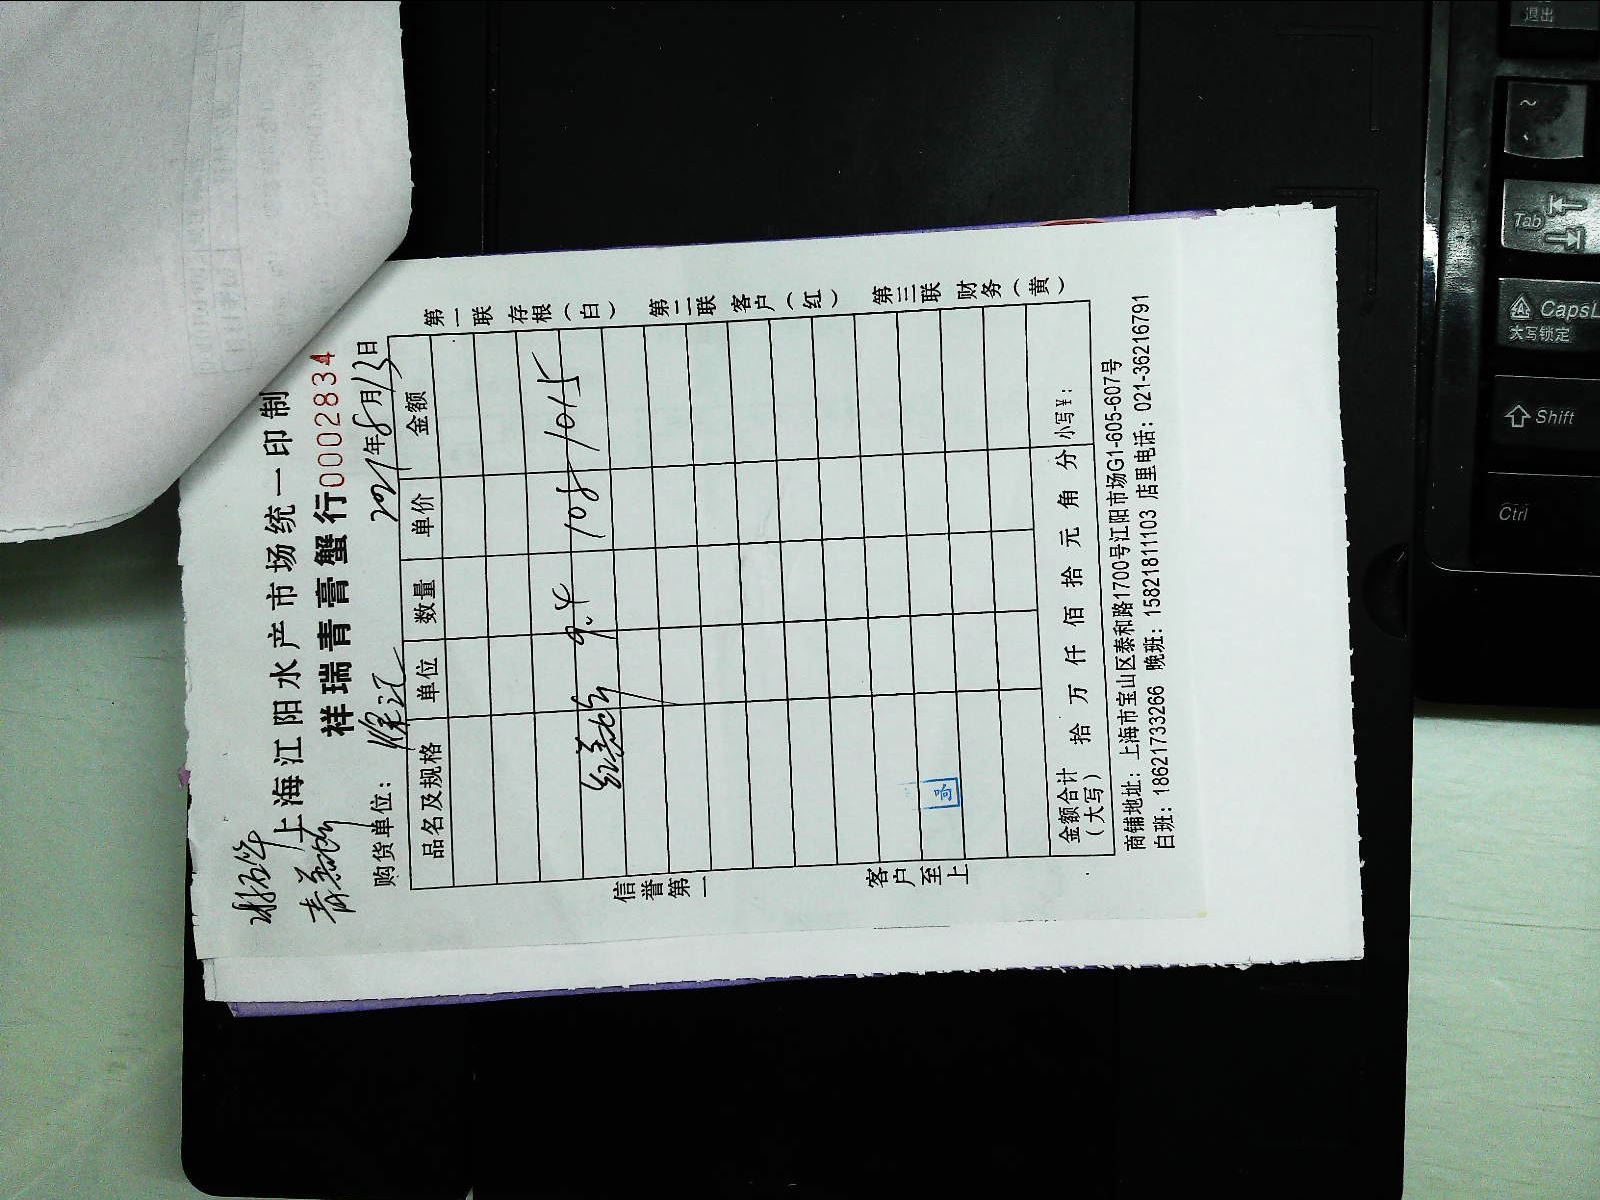 上海江阳水产市场统一印制
祥瑞青膏蟹行 0002834
购货单位： 徐记 2021年8月13日
品名及规格 单位 数量 单价 金额
9.4 108 1015
金额合计（大写） 拾 万 仟 佰 拾 元 角 分 小写¥：
商铺地址：上海市宝山区泰和路1700号江阳市场G1-605-607号
白班：18621733266 晚班：15821811103 店里电话：021-36216791
信誉第一
客户至上
第一联 存根（白）
第二联 客户（红）
第三联 财务（黄）
退出
~
Tab
CapsL
大写锁定
Shift
Ctrl